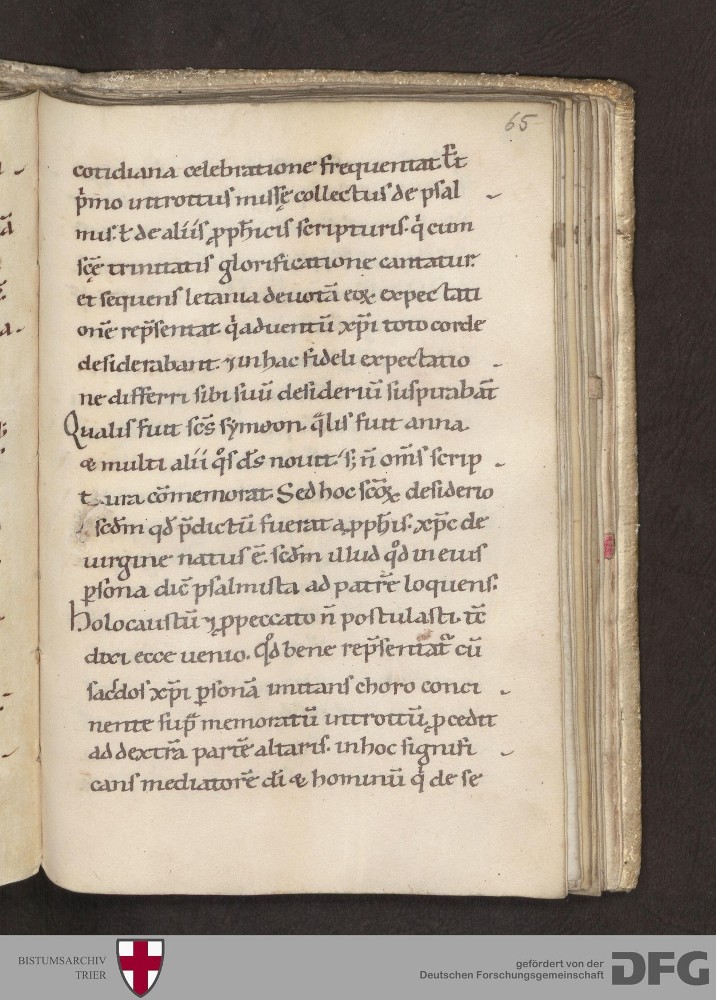 65
cotidiana celebratione frequentat. Est
p̍mo introitus missę collectus de psal
mis. ł de aliis ꝓph̄icis scripturis. q̍ cum
sc̄ę trinitatis glorificatione cantatur.
et sequens letania deuotā eoꝝ expectati
onē rep̄sentat q̍ aduentū xp̄i toto corde
desiderabant. ⁊ in hac fideli expectatio
ne differri sibi suū desideriū suspirabāt
Qualis fuit sc̄s symeon. q̄lis fuit anna
& multi alii q̊s dſ̄ nouit. s; n̄ om̄s scrip
tura cōmemorat. Sed hoc sc̄oꝝ desiderio
scd̄m qd̄ p̄dictū fuerat a ꝓph̄is. xp̄c de
uirgine natus ē. scd̄m illud q̊d in eius
ꝑsona dic̄ psalmista ad patrē loquens.
Holocaustū ⁊ ꝓ peccato n̄ postulasti. tc̄
dixi ecce uenio. Q̊d bene rep̄sentat̄ cū
sac̄dos xp̄i ꝑsonā imitans choro conci
nente sup̄ memoratū introitū, ꝓcedit
ad dextrā partē altaris. in hoc signifi
cans mediatorē dī & hominū q̍ de se
BISTUMSARCHIV
TRIER
gefördert von der
Deutschen Forschungsgemeinschaft
DFG